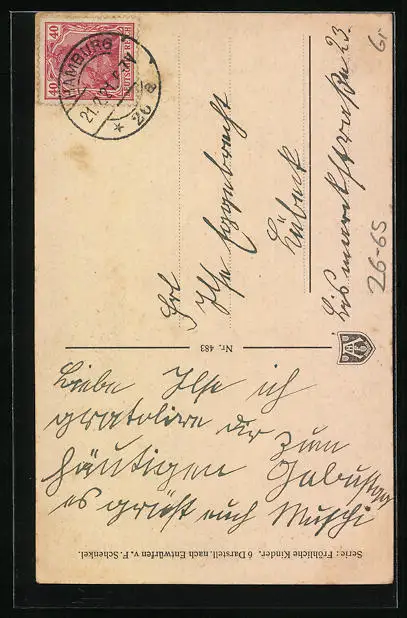 40 40
DEUTSCHES REICH
HAMBURG
21
* 26 a
Frl
Ilse Eggebrecht
Lübeck
Bismarckstraße 23.
61
26-65
Nr. 483
Liebe Ilse ich
gratoliere dir zum
häutigen Gebustag
es grüßt euch Muschi
Serie: Fröhliche Kinder. 6 Darstell. nach Entwürfen v. F. Schenkel.